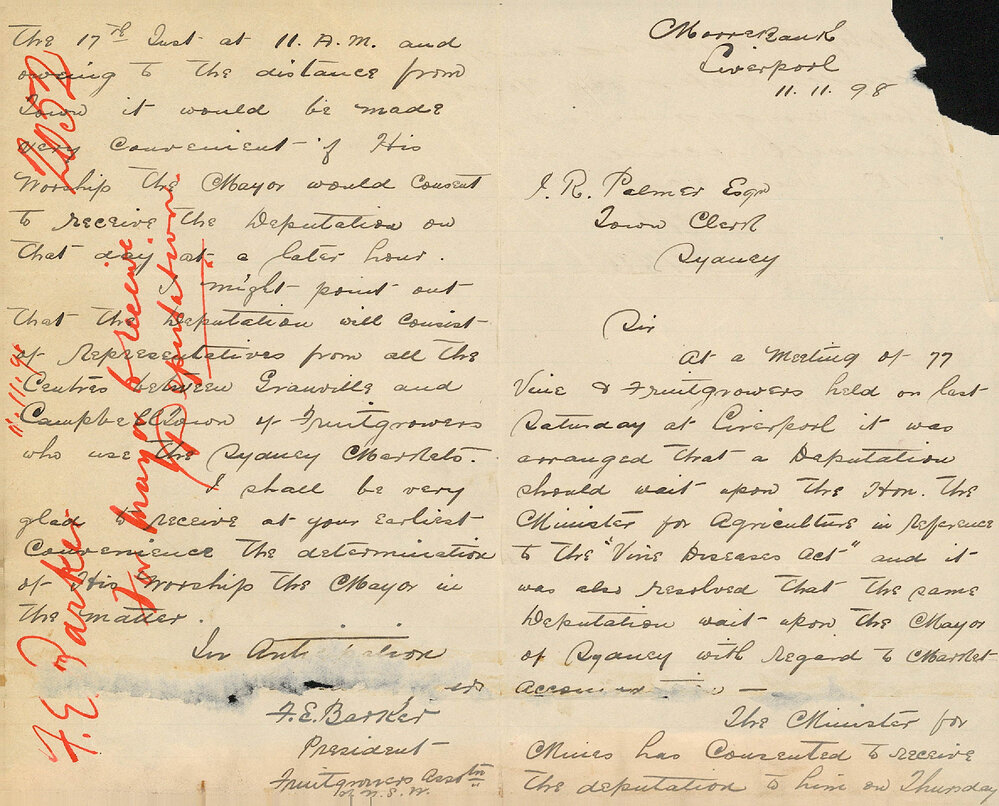 Moorebank
Liverpool
11.11.98
J. R. Palmer Esqr
Town Clerk
Sydney
Sir
At a Meeting of 77
Vine & Fruitgrowers held on last
Saturday at Liverpool it was
arranged that a Deputation
should wait upon the Hon. the
Minister for Agriculture in reference
to the "Vine Diseases Act" and it
was also resolved that the same
Deputation wait upon the Mayor
of Sydney with regard to Market
The Minister for
Mines has Consented to receive
the deputation to him on Thursday
the 17th Inst at 11. A.M. and
owing to the distance from
Town it would be made
very Convenient if His
Worship the Mayor would Consent
to receive the Deputation on
that day at a later hour.
I might point out
that the Deputation will Consist
of Representatives from all the
Centres between Granville and
Campbelltown of Fruitgrowers
who use the Sydney Markets.
I shall be very
glad to receive at your Earliest
Convenience the determination
of His Worship the Mayor in
the matter.
In
F. E. Barker
President
Fruitgrowers Assotn
of N.S.W.
F. E. Barker
For Mayor to receive
Deputation
11.11.98